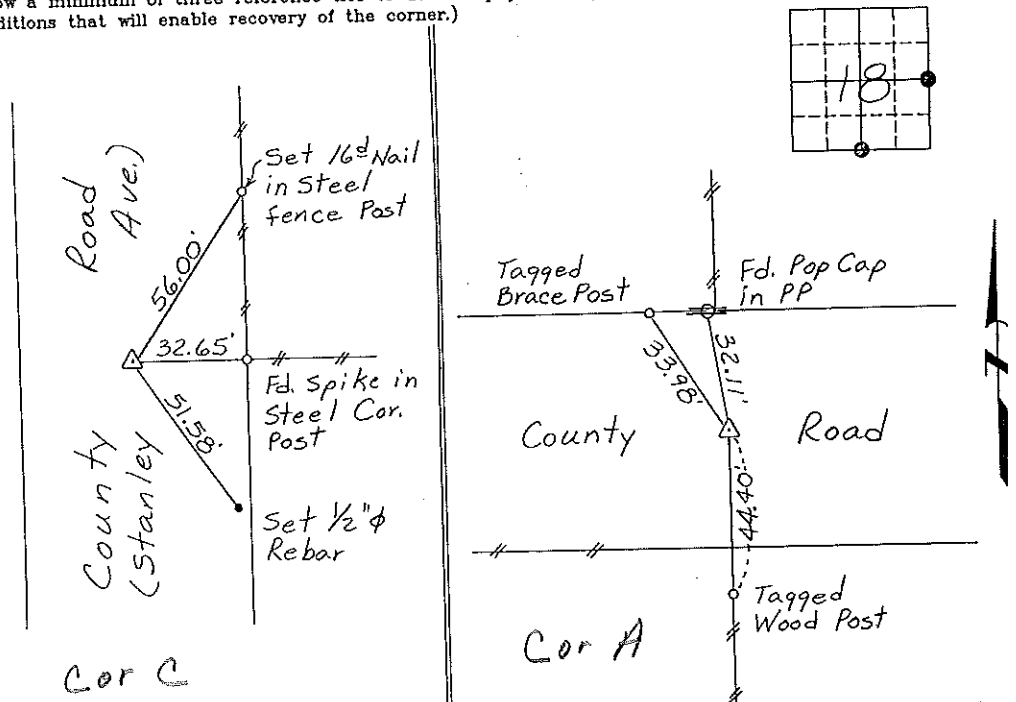 a minimum of three reference
ditions that will enable recovery of the corner.)
18
Road
Ave.)
Set 16d Nail
in Steel
fence Post
56.00'
32.65'
Fd. Spike in
Steel Cor.
Post
51.58'
County
(Stanley
Set 1/2"ϕ
Rebar
Cor C
Tagged
Brace Post
Fd. Pop Cap
in PP
33.98'
32.11'
County
Road
44.40'
Tagged
Wood Post
Cor A